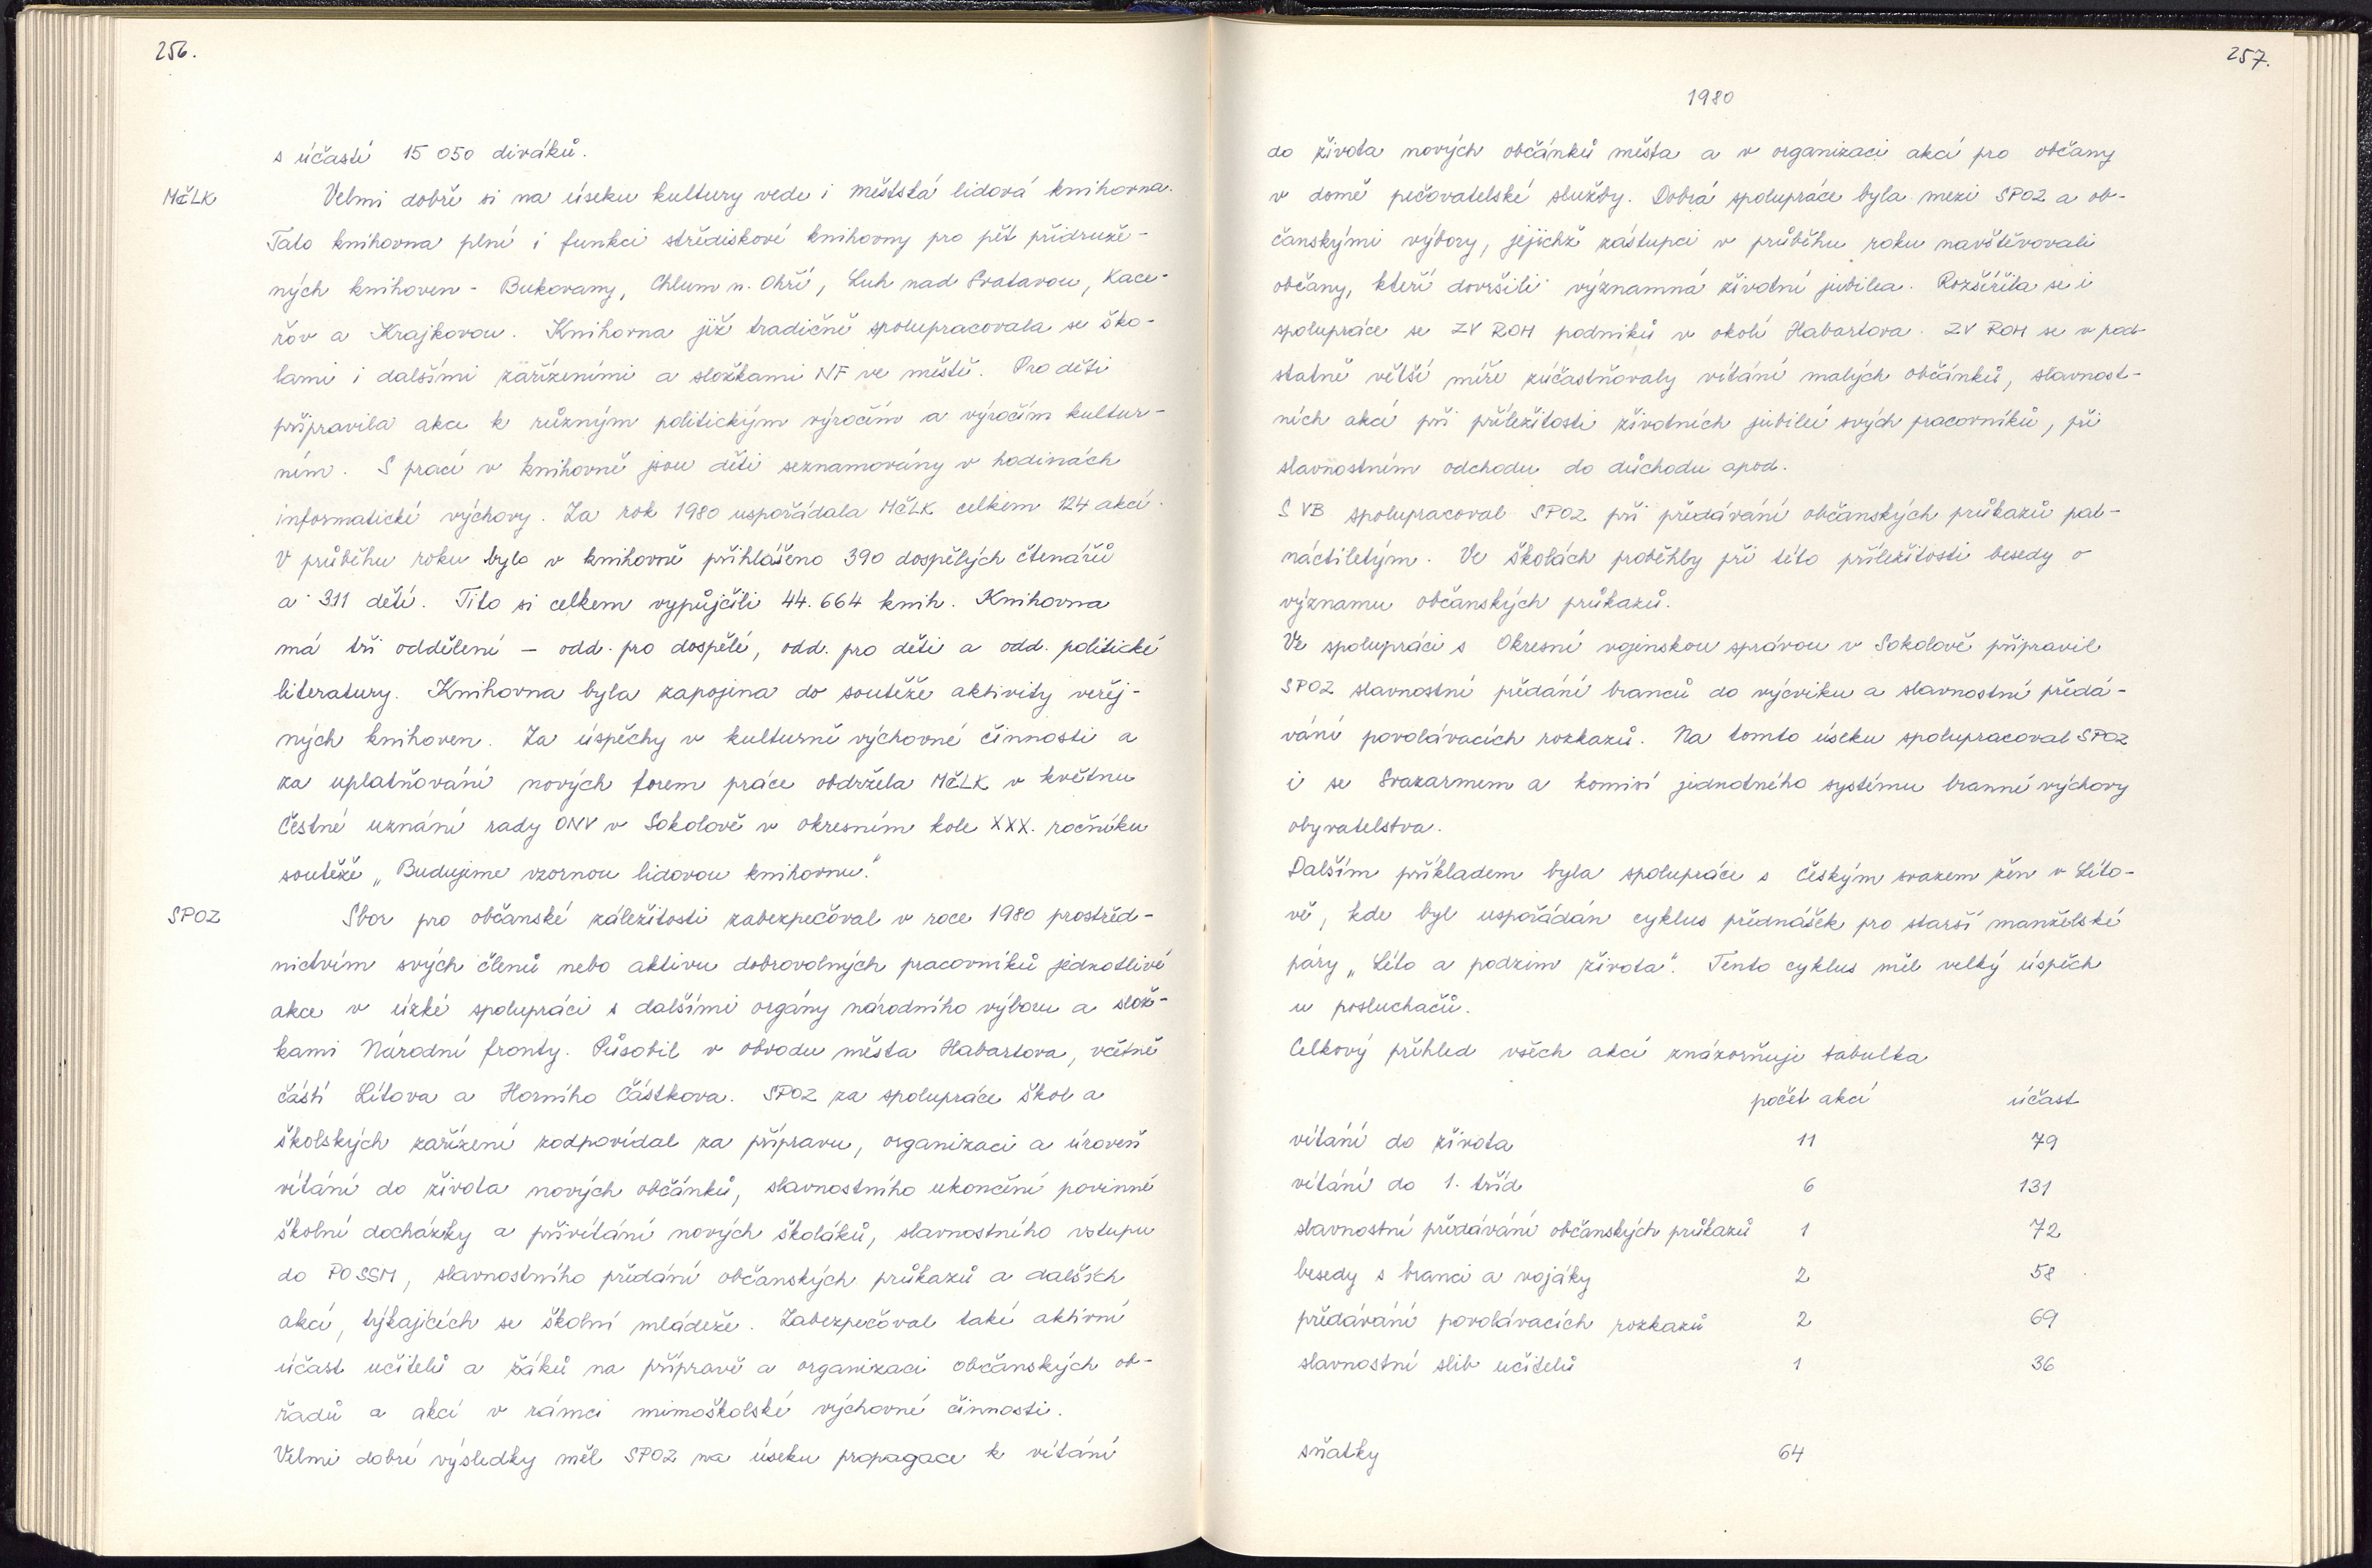 256.
s účastí 15 050 diváků.
MěLK
Velmi dobře si na úseku kultury vede i městská lidová knihovna.
Tato knihovna plní i funkci střediskové knihovny pro pět přidruže-
ných knihoven - Bukovany, Chlum n. Ohří, Luh nad Svatavou, Kace-
řov a Krajkovou. Knihovna již tradičně spolupracovala se ško-
lami i dalšími zařízeními a složkami NF ve městě. Pro děti
připravila akce k různým politickým výročím a výročím kultur-
ním. S prací v knihovně jsou děti seznamovány v hodinách
informatické výchovy. Za rok 1980 uspořádala MěLK celkem 124 akcí.
V průběhu roku bylo v knihovně přihlášeno 390 dospělých čtenářů
a 311 dětí. Tito si celkem vypůjčili 44.664 knih. Knihovna
má tři oddělení – odd. pro dospělé, odd. pro děti a odd. politické
literatury. Knihovna byla zapojena do soutěže aktivity veřej-
ných knihoven. Za úspěchy v kulturně výchovné činnosti a
za uplatňování nových forem práce obdržela MěLK v květnu
čestné uznání rady ONV v Sokolově v okresním kole XXX. ročníku
soutěže „Budujeme vzornou lidovou knihovnu."
SPOZ
Sbor pro občanské záležitosti zabezpečoval v roce 1980 prostřed-
nictvím svých členů nebo aktivu dobrovolných pracovníků jednotlivé
akce v úzké spolupráci s dalšími orgány národního výboru a slož-
kami Národní fronty. Působil v obvodu města Habartova, včetně
částí Lítova a Horního Částkova. SPOZ za spolupráce škol a
školských zařízení zodpovídal za přípravu, organizaci a úroveň
vítání do života nových občánků, slavnostního ukončení povinné
školní docházky a přivítání nových školáků, slavnostního vstupu
do PO SSM, slavnostního předání občanských průkazů a dalších
akcí, týkajících se školní mládeže. Zabezpečoval také aktivní
účast učitelů a žáků na přípravě a organizaci občanských ob-
řadů a akcí v rámci mimoškolské výchovné činnosti.
Velmi dobré výsledky měl SPOZ na úseku propagace k vítání
257.
1980
do života nových občánků města a v organizaci akcí pro občany
v domě pečovatelské služby. Dobrá spolupráce byla mezi SPOZ a ob-
čanskými výbory, jejichž zástupci v průběhu roku navštěvovali
občany, kteří dovršili významná životní jubilea. Rozšířila se i
spolupráce se ZV ROH podniků v okolí Habartova. ZV ROH se v pod-
statně větší míře zúčastňovaly vítání malých občánků, slavnost-
ních akcí při příležitosti životních jubileí svých pracovníků, při
slavnostním odchodu do důchodu apod.
S VB spolupracoval SPOZ při předávání občanských průkazů pat-
náctiletým. Ve školách proběhly při této příležitosti besedy o
významu občanských průkazů.
Ve spolupráci s Okresní vojenskou správou v Sokolově připravil
SPOZ slavnostní předání branců do výcviku a slavnostní předá-
vání povolávacích rozkazů. Na tomto úseku spolupracoval SPOZ
i se Svazarmem a komisí jednotného systému branné výchovy
obyvatelstva.
Dalším příkladem byla spolupráce s Českým svazem žen v Líto-
vě, kde byl uspořádán cyklus přednášek pro starší manželské
páry „Léto a podzim života". Tento cyklus měl velký úspěch
u posluchačů.
Celkový přehled všech akcí znázorňuje tabulka
počet akcí účast
vítání do života 11 79
vítání do 1. tříd 6 131
slavnostní předávání občanských průkazů 1 72
besedy s branci a vojáky 2 58
předávání povolávacích rozkazů 2 69
slavnostní slib učitelů 1 36
sňatky 64